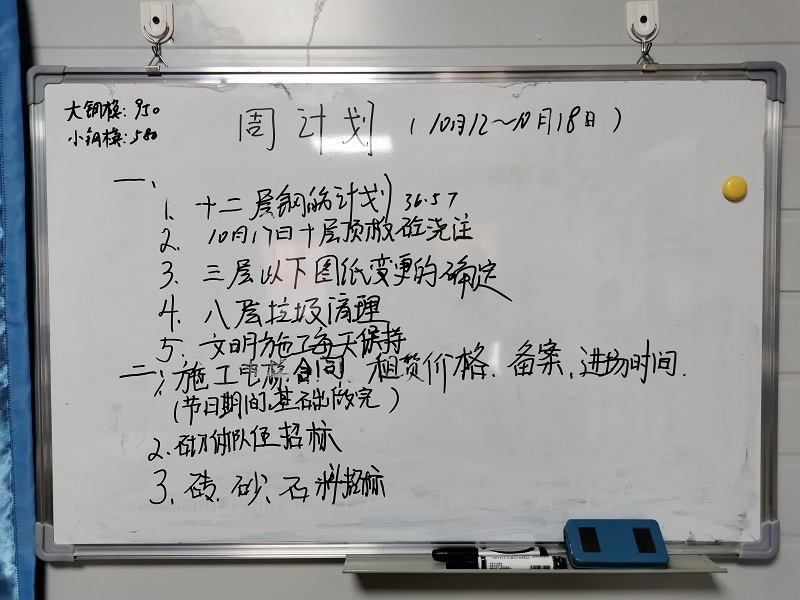 大钢模：950
小钢模：580
周计划（10月12～10月18日）
一、
1. 十二层钢筋计划 36.57
2. 10月17日十层顶板砼浇注
3. 三层以下图纸变更的确定
4. 八层垃圾清理
5. 文明施工每天保持
二、1. 施工电梯合同、租赁价格、备案、进场时间.
(节日期间基础做完)
2. 砌体队伍招标
3. 砖、砂、石料招标
WHITEBOARD